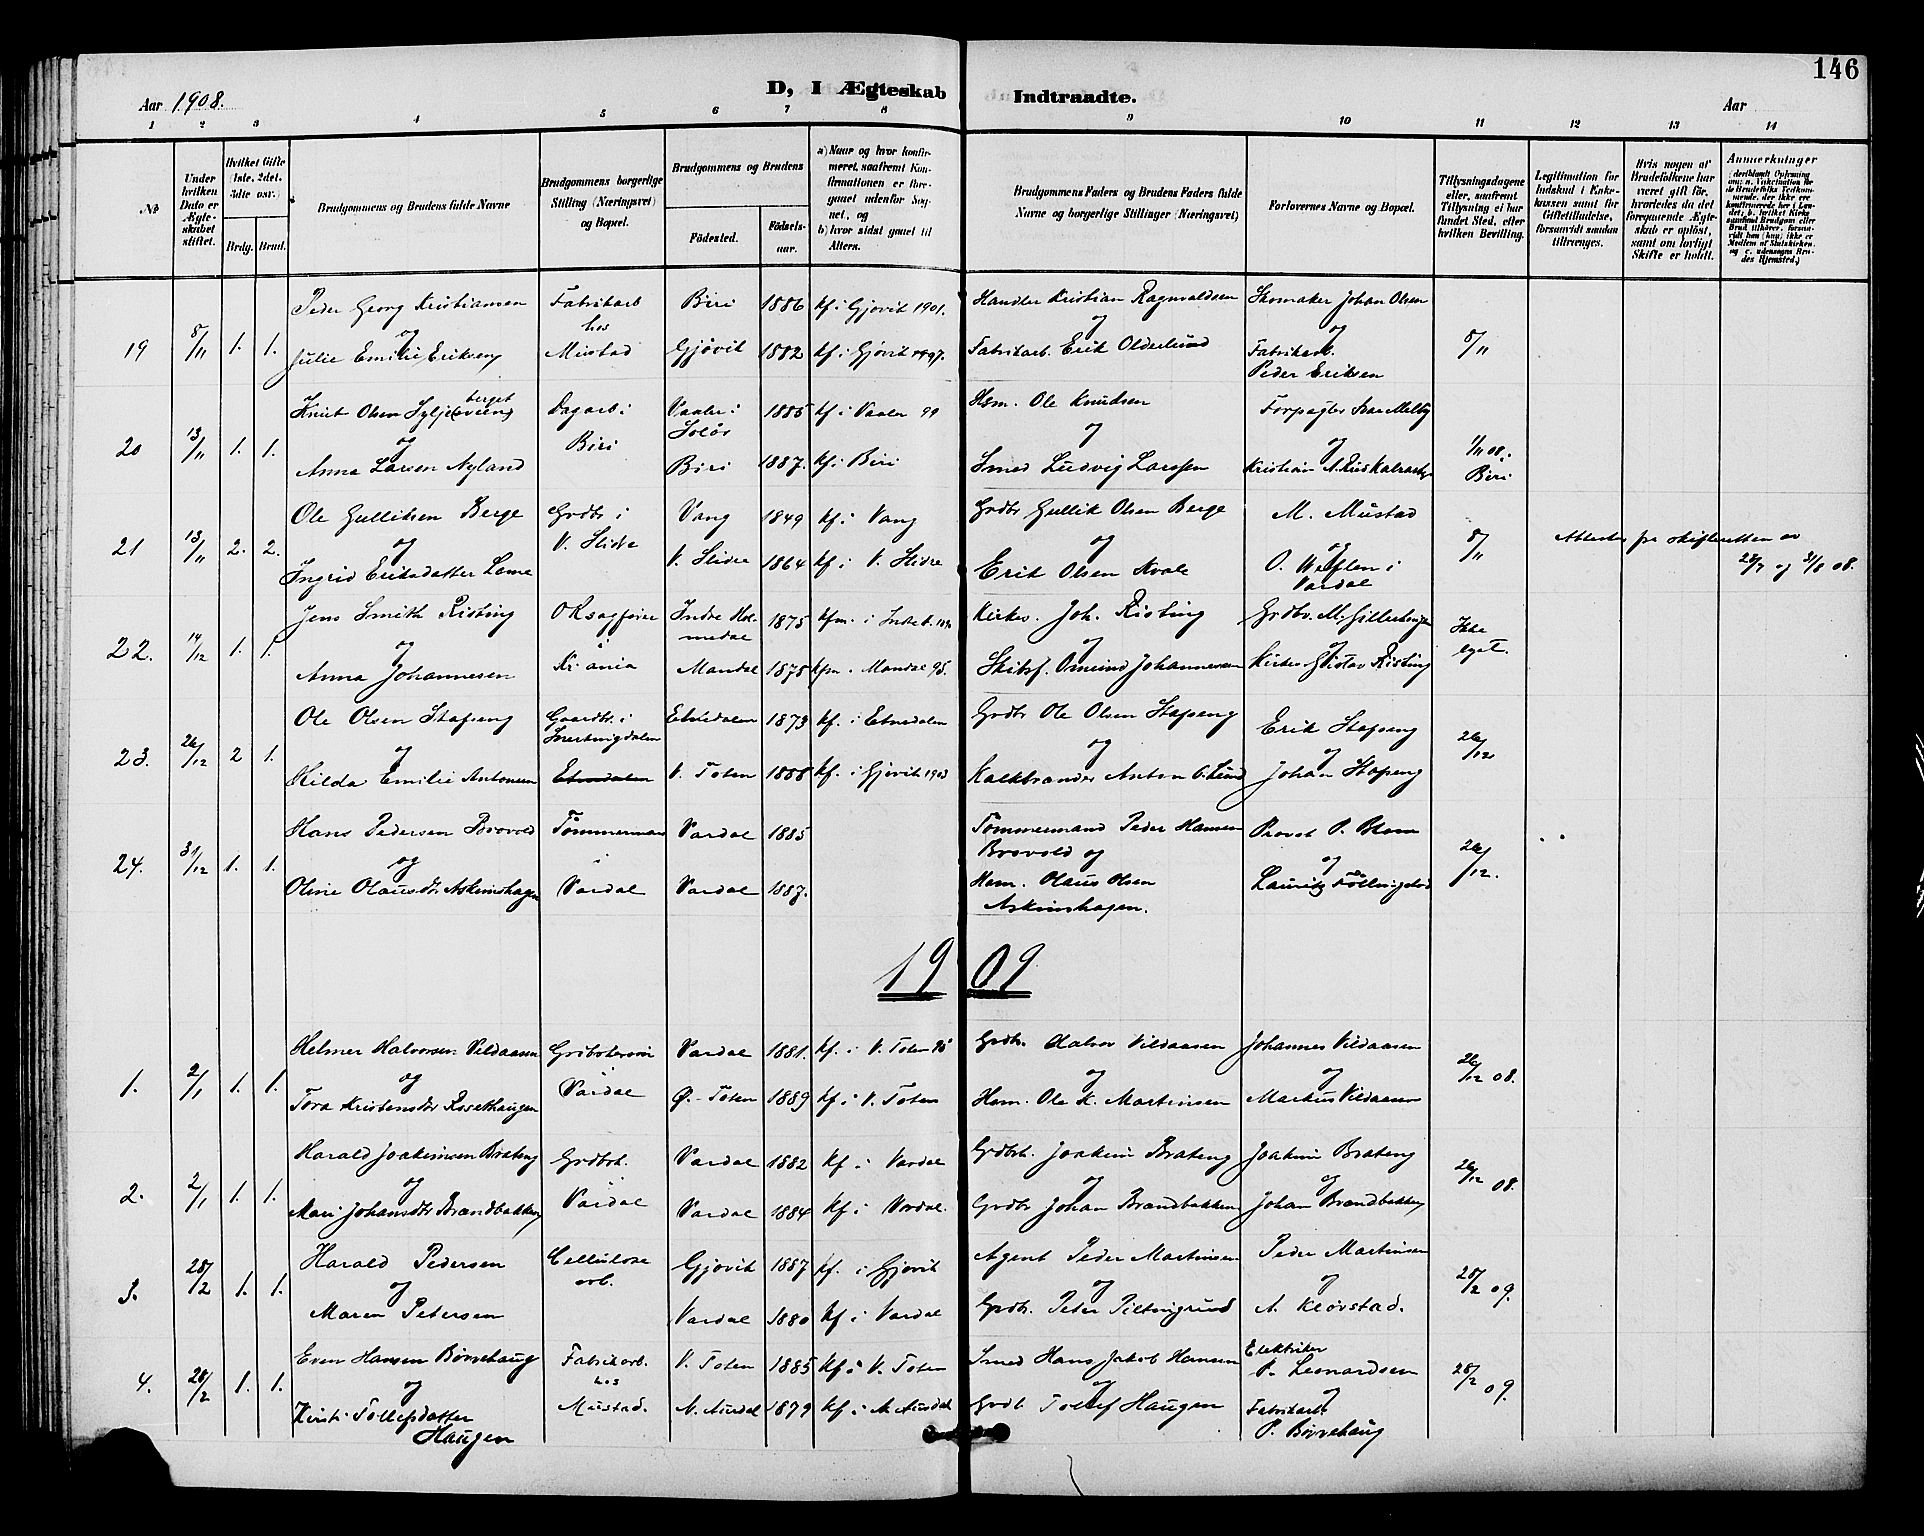 146
Aar 1908.
D, I Ægteskab Indtraadte.
Aar
1 2 3 4 5 6 7 8 9 10 11 12 13 14
№
Under hvilken Dato er Ægteskabet stiftet.
Hvilket Gifte (1ste, 2det, 3die osv.)
Brdg. Brud.
Brudgommens og Brudens fulde Navne
Brudgommens borgerlige Stilling (Næringsvei) og Bopæl.
Brudgommens og Brudens
Fødested. Fødselsaar.
a) Naar og hvor konfirmeret, saafremt Konfirmationen er foregaaet udenfor Sognet, og
b) hvor sidst gaaet til Alters.
Brudgommens Faders og Brudens Faders fulde Navne og borgerlige Stillinger (Næringsvei)
Forlovernes Navne og Bopæl.
Tillysningsdagene eller, saafremt Tillysning ei har fundet Sted, efter hvilken Bevilling.
Legitimation for Indskud i Enkekassen samt for Giftetilladelse, forsaavidt saadan tiltrænges.
Hvis nogen af Brudefolkene har været gift før, hvorledes da det foregaaende Ægteskab er opløst, samt om lovligt Skifte er holdt.
Anmerkninger
19 8/11 1. 1.
Peder Georg Kristiansen
og
Julie Emilie Eriksen
Fabrikarb
hos
Mustad
Biri 1886 kf. i Gjøvik 1901.
Gjøvik 1882 kf. i Gjøvik 1897.
Handler Kristian Ragnvaldsen
og
Fabrikarb. Erik Olderlund
Skomaker Johan Olsen
og
Fabrikarb.
Peder Eriksen
8/11
20 13/11 1. 1.
Knut Olsen Sylje(veien)
berget
og
Anna Larsen Nyland
Dagarb i
Biri
Vaaler i
Solør
1885 kf. i Vaaler 99
Biri 1887. kf. i Biri
Hsm. Ole Knudsen
og
Smed Ludvig Larssen
Forpagter Ivar Melby
og
Kristian A.
1/11 08.
Biri
21 13/11 2. 2.
Ole Gulliksen Berge
og
Ingrid Eriksdatter Lome
Grdbr i
V. Slidre
Vang 1849 kf. i Vang
V. Slidre 1864 kf. i V. Slidre
Grdbr Gullik Olsen Berge
og
Erik Olsen Kvale
M. Mustad
og
O. Weflen i
Vardal
8/11
Attester fra skifteretten av
28/7 og 31/8 08.
22. 14/12 1. 1.
Jens Smith Risting
og
Anna Johannesen
O.R.sagfører
Kr.ania
Indre Holmedal
1875 kfm. i Indre h.
Mandal 1878 kfm. i Mandal 93.
Kirkes. Joh. Risting
og
Skibsf. Omund Johannesen
Grdbr. M.
og
Kirkes Gustav Risting
Ikke
lyst.
23. 26/12 2 1.
Ole Olsen Stapeng
og
Hilda Emilie Antonsen
Gaardbr. i
Snertingdalen
Etnedalen
Etnedalen 1873 kf. i Etnedalen
V. Toten 1888 kf. i Gjøvik 1903
Grdbr Ole Olsen Stapeng
og
Kalkbrænder Anton O. Lund
Erik Stapeng
og
Johan Stapeng
26/12
24. 31/12 1. 1.
Hans Pedersen Brovold
og
Oline Olausdtr Askimshagen
Tømmermand
i
Vardal
Vardal 1885
Vardal 1887.
Tømmermand Peder Hansen
Brovold og
Hsm. Olaus Olsen
Askimshagen.
Provst P. Blom
og
Lauritz Føllingstad
26/12.
1909
1. 2/1 1. 1.
Helmer Halvorsen Vildaasen
og
Tora Kristensdtr Røsethaugen
Vardal
Vardal 1881. kf. i V. Toten 95
Ø. Toten 1889 kf. i V. Toten
Grdbr. Halvor Vildaasen
og
Hsm. Ole K. Martinsen
Johannes Vildaasen
og
Markus Vildaasen
26/12 08.
2. 2/1 1. 1.
Harald Joakimsen Brateng
og
Mari Johansdtr Brandbakken
Grdbrs.
Vardal
Vardal 1882 kf. i Vardal
Vardal 1884 kf. i Vardal.
Grdbr. Joakim Brateng
og
Grdbr Johan Brandbakken
Joakim Brateng
og
Johan Brandbakken
26/12 08.
3. 28/2 1. 1.
Harald Pedersen
og
Maren Petersen
Cellulose
arb.
Gjøvik 1887 kf. i Gjøvik
Vardal 1880 kf. i Vardal
Agent Peder Martinsen
og
Grdbr. Peder Piltingsrud
Peder Martinsen
og
A. Kløvstad.
28/2 09.
4. 28/2 1. 1.
Even Hansen Børrehaug
og
Kirsti Tollefsdatter
Haugen
Fabrikarb.
hos
Mustad.
V. Toten 1885 kf. i V. Toten
N. Aurdal 1879 kf. i N. Aurdal
Smed Hans Jakob Hansen
og
Grdb Tollef Haugen
Elektriker
P. Leonardsen
og
Fabrikarb.
P. Børrehaug
28/2 09.